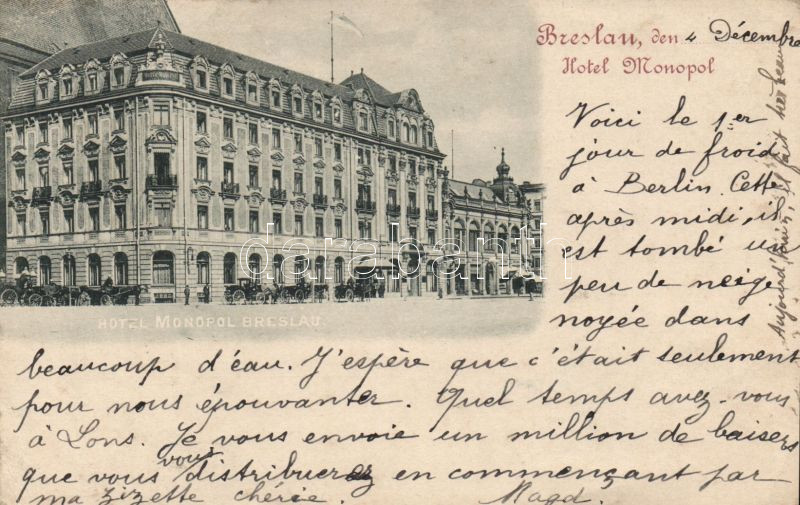 Breslau, den 4 Décembre
Hotel Monopol
Voici le 1er
jour de froid
à Berlin. Cette
après midi, il
est tombé un
peu de neige
noyée dans
beaucoup d'eau. J'espère que c'était seulement
pour nous épouvanter. Quel temps avez-vous
à Lons. Je vous envoie un million de baisers
que vous vous distribuerez en commençant par
ma zizette chérie. Magd.
Aujourd'hui, il fait très beau
HOTEL MONOPOL BRESLAU
darabanth